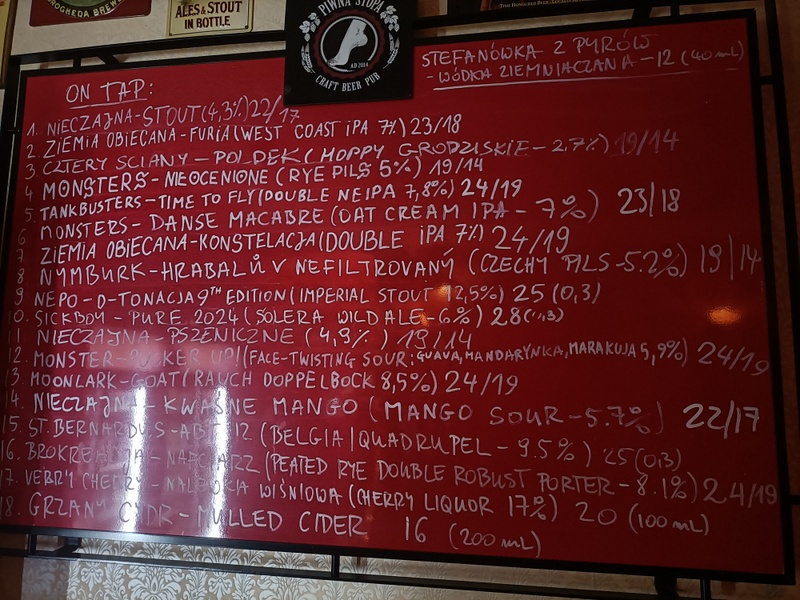 ALES & STOUT
IN BOTTLE
PIWNA STOPA
AD 2014
CRAFT BEER PUB
STEFANÓWKA Z PYRÓW
- WÓDKA ZIEMNIACZANA - 12 (40 mL)
ON TAP:
1. NIECZAJNA - STOUT (4,3%) 22/17
2. ZIEMIA OBIECANA - FURIA (WEST COAST IPA 7%) 23/18
3 CZTERY ŚCIANY - POLDEK (HOPPY GRODZISKIE - 2.7%) 19/14
4 MONSTERS - NIEOCENIONE (RYE PILS 5%) 19/14
5. TANKBUSTERS - TIME TO FLY (DOUBLE NEIPA 7,8%) 24/19
6 MONSTERS - DANSE MACABRE (OAT CREAM IPA - 7%) 23/18
7 ZIEMIA OBIECANA - KONSTELACJA (DOUBLE IPA 7%) 24/19
8 NYMBURK - HRABALŮV NEFILTROVANÝ (CZECHY PILS - 5.2%) 19/14
9 NEPO - D-TONACJA 9TH EDITION (IMPERIAL STOUT 12,5%) 25 (0,3)
10. SICKBOY - PURE 2024 (SOLERA WILD ALE - 6%) 28 (0,3)
11 NIECZAJNA - PSZENICZNE (4,9%) 19/14
12. MONSTER - PUCKER UP! (FACE-TWISTING SOUR: GUAVA, MANDARYNKA, MARAKUJA 5,9%) 24/19
13. MOONLARK - GOAT (RAUCH DOPPELBOCK 8,5%) 24/19
14. NIECZAJNA - KWAŚNE MANGO (MANGO SOUR - 5.7%) 22/17
15. ST. BERNARDUS - ABT 12 (BELGIA | QUADRUPEL - 9.5%) 25 (0,3)
16. BROKREACJA - NAFCIARZ (PEATED RYE DOUBLE ROBUST PORTER - 8.1%) 24/19
17. VERRY CHERRY - NALEWKA WIŚNIOWA (CHERRY LIQUOR 17%) 20 (100 mL)
18. GRZANY CYDR - MULLED CIDER 16 (200 mL)